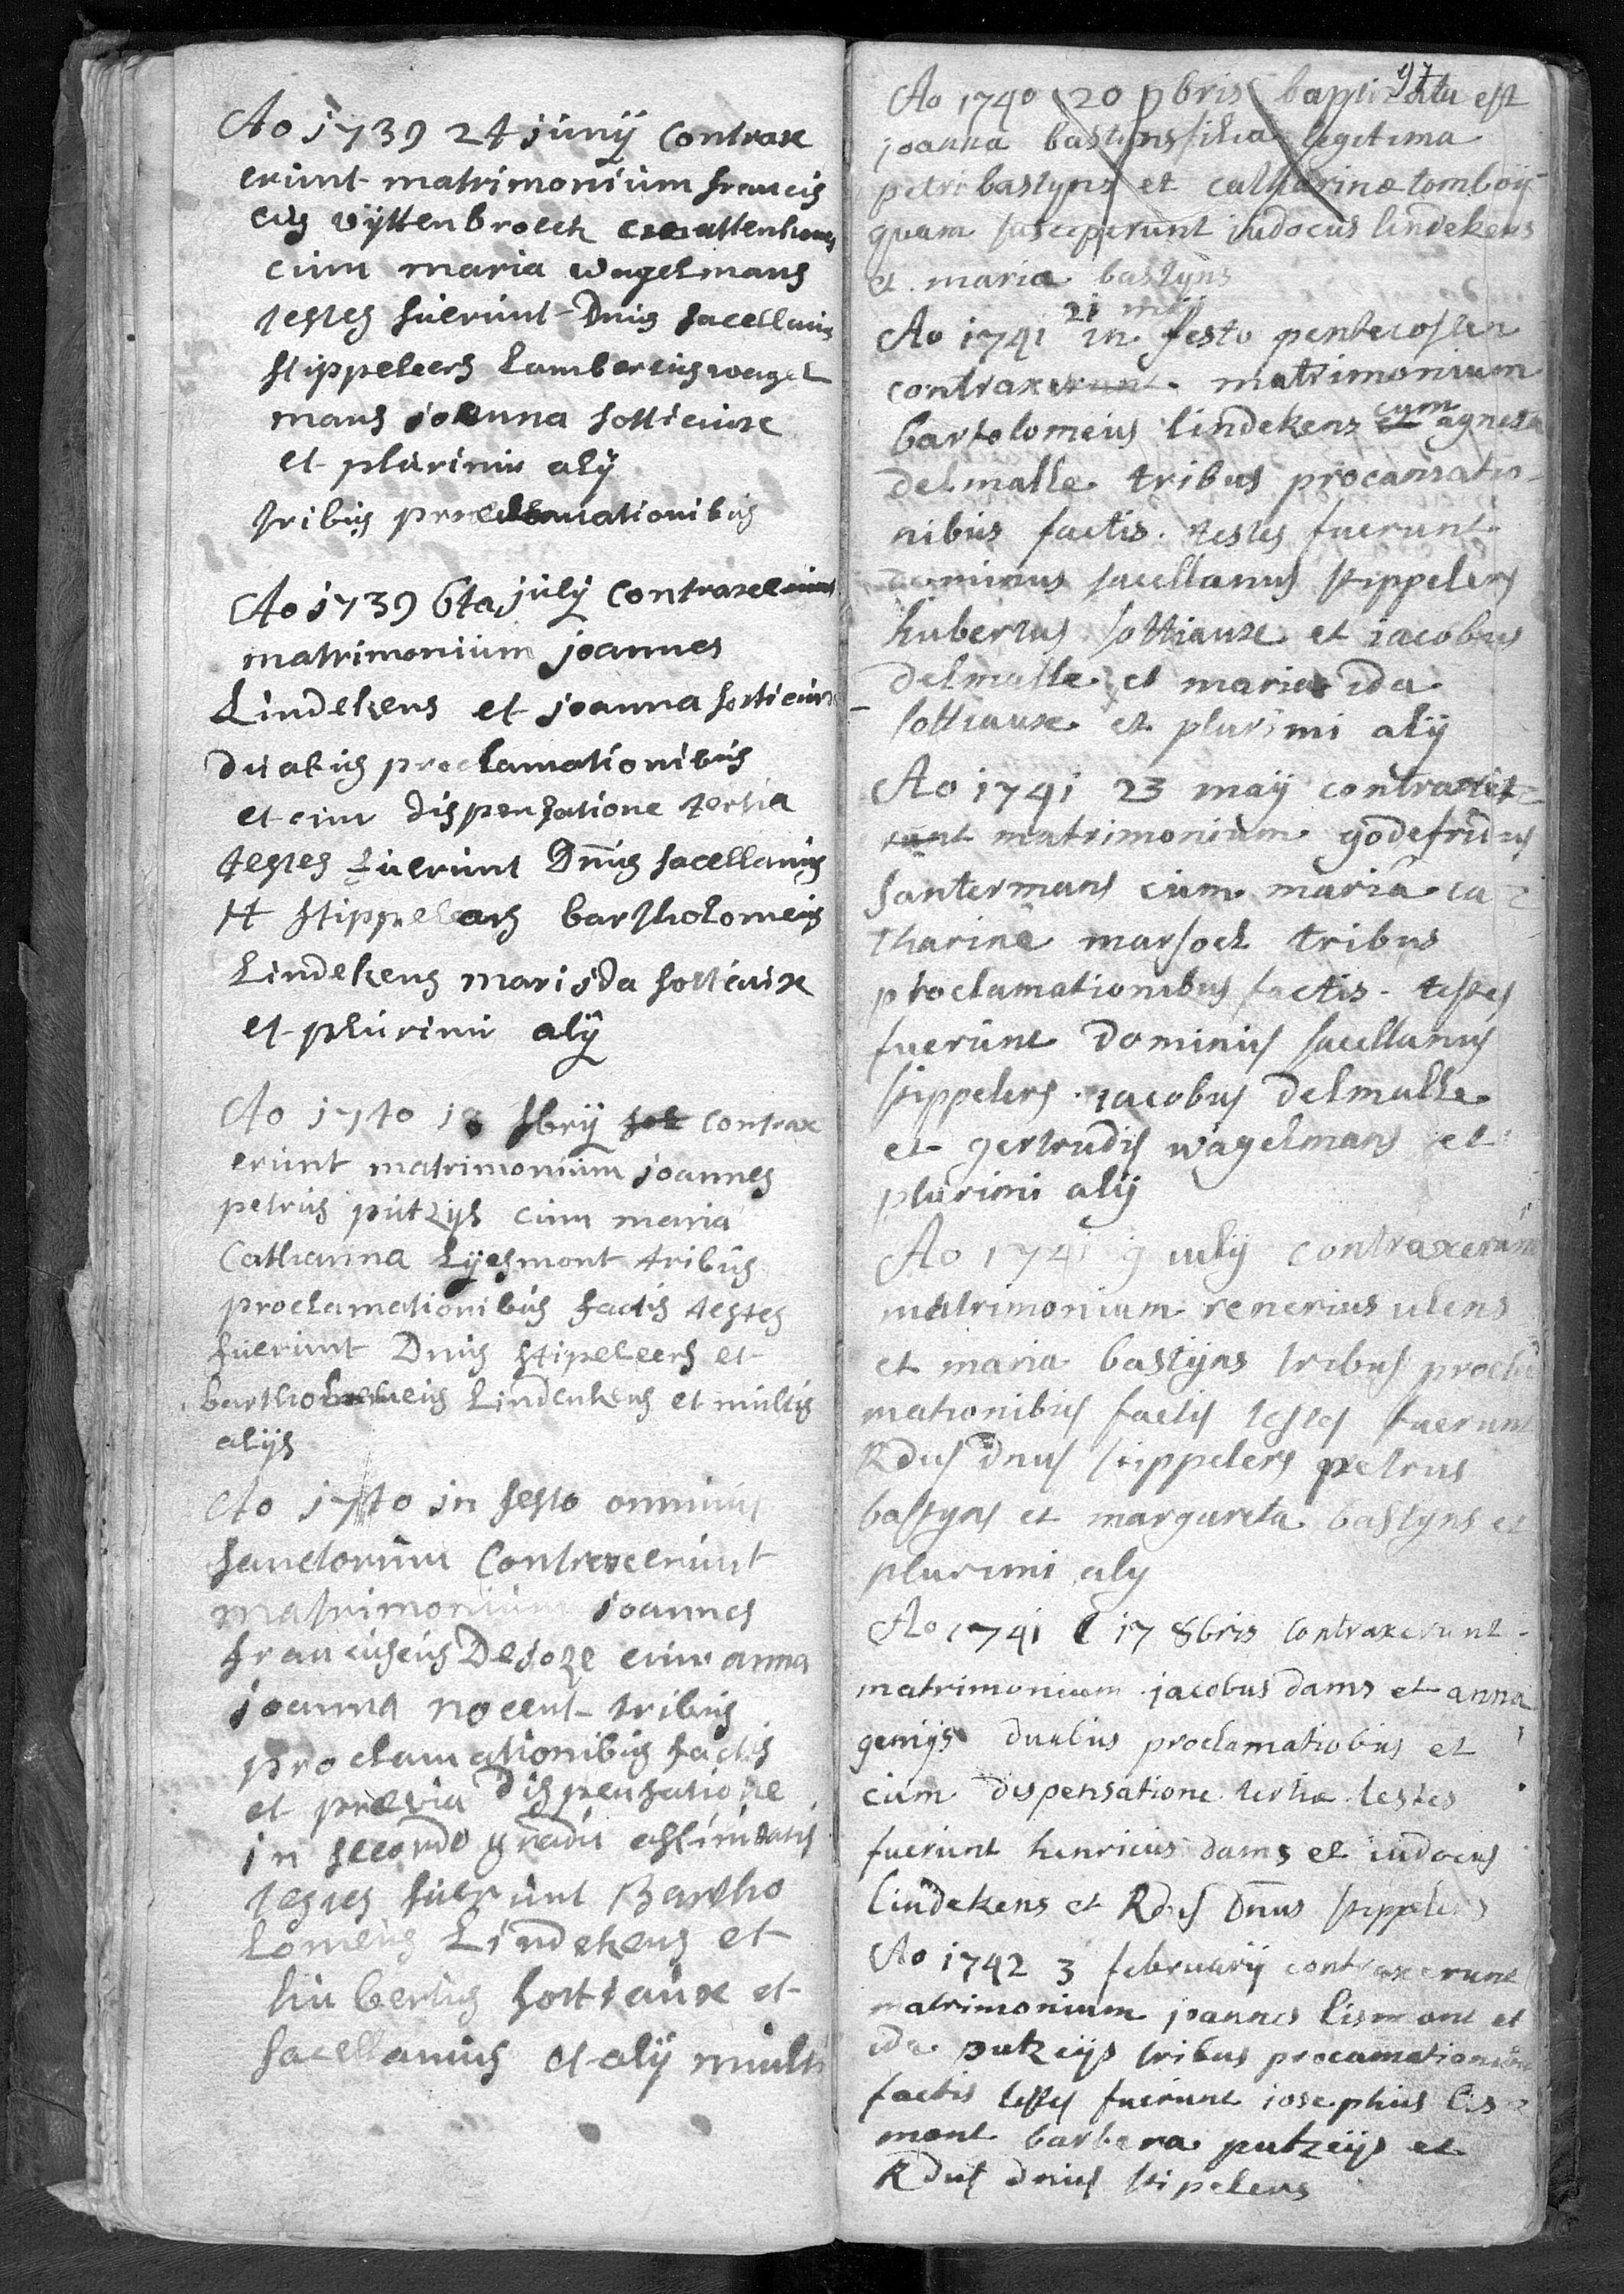 Ao 1739 24 junÿ contrax
erunt matrimonium francis
cus uÿttenbroeck
cum maria wagelmans
testes fuerunt Dnus sacellanus
stippeleers Lambertus wagel
mans joanna sottieaux
et plurimi alÿ
tribus proclamationibus
Ao 1739 6ta julÿ contraxerunt
matrimonium joannes
Lindekens et joanna sottieaux
duabus proclamationibus
et cum dispensatione tertia
testes fuerunt Dnus sacellanus
H stippeleers bartholomeus
Lindekens mari ida sottieaux
et plurimi alÿ
Ao 1740 18 contrax
erunt matrimonium joannes
petrus putzijs cum maria
Catharina Lÿesmont tribus
proclamationibus factis testes
fuerunt Dnus stipeleers et
Lindenkens et multis
alÿs
Ao 1740 in festo omnius
sanctorum contraxerunt
matrimonium joannes
franciscus Dejoze cum anna
joanna nocent tribus
proclamationibus factis
et prævia dispensatione
in secondo gradu
testes fuerunt Bartho
Lomeus Lindekens et
hubertus sottiaux et
sacellanus et alÿ multi
97
Ao 1740 20 bris baptizata est
joanna bastijns filia legetima
petri bastyns et catharinæ tomboÿ
quam susceperunt iudocus lindekens
et maria bastÿns
21 maÿ
Ao 1741 in festo pentecosten
contraxerunt matrimonium
cum
bartolomeus lindekens et agnesa
delmalle tribus procamatio
nibus factis testes fuerunt
dominus sacellanus stippelers
hubertus sottiaux et iacobus
delmalle et maria ida
sottiaux et plurimi alÿ
Ao 1741 23 maÿ contraxit
runt matrimonium godefridus
santermans cum maria ca
tharine marsoel tribus
proclamationibus factis testes
fuerunt dominus sacellanus
stippelers iacobus delmalle
et gertrudis wagelmans et
plurimi alÿ
Ao 1741 9 iulÿ contraxerunt
matrimonium renerius ulens
et maria bastÿns tribus procla
mationibus factis testes fuerunt
Rdus dnus stippelers petrus
bastyns et margareta bastyns et
plurimi aly
Ao 1741 17 8bris contraxerunt
matrimonium jacobus dams et anna
genijs duabus proclamatiobus et
cum dispensatione tertiæ testes
fuerunt henricus dams et iudocus
lindekens et Rdus Dnus stippelers
Ao 1742 3 februarÿ contraxerunt
matrimonium joannes lismont et
ida putzeijs tribus procamationibus
factis testes fuerunt iosephus lis
mont barbera putzeijs et
Rdus dnus stipelers